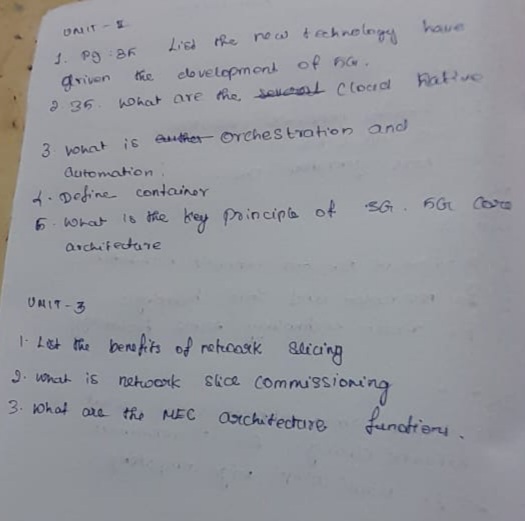 UNIT - 2
1. Pg : 35 List the new technology have
driven the development of 5G.
2. 35. What are the several Cloud Native
3. what is Orchestration and
automation.
4. Define container
5. What is the key principle of 3G. 5G Core
architecture
UNIT - 3
1. List the benefits of network slicing
2. what is network slice commissioning
3. What are the MEC architecture functions.